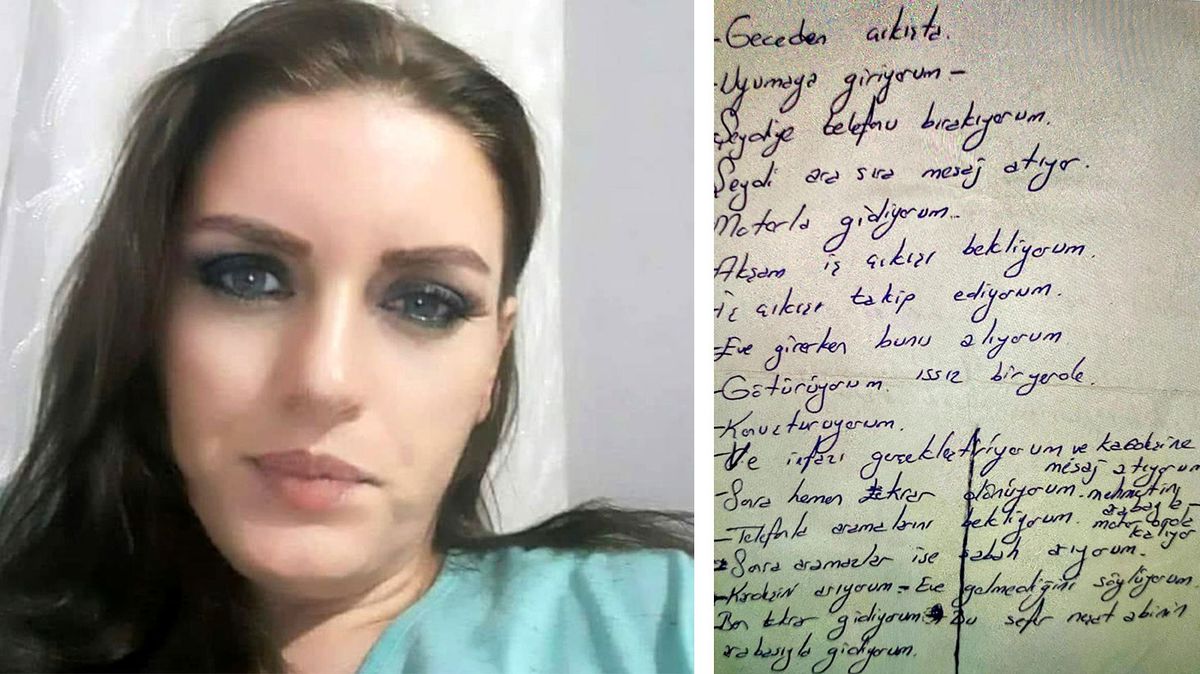 -Geceden çıkışta.
-Uyumaya giriyorum -
Şeydiye telefonu bırakıyorum.
Şeydi ara sıra mesaj atıyor.
Motorla gidiyorum..
-Akşam iş çıkışı bekliyorum.
-iş çıkışı takip ediyorum.
-Eve girerken bunu alıyorum
-Götürüyorum. ıssız bir yerde.
-Konuşturuyorum.
-Ve infazı gerçekleştiriyorum ve kardeşine
mesaj atıyorum
-Sonra hemen tekrar dönüyorum. mehmetin
arabayla-
-Telefonla aramalarını bekliyorum. motor orda
kalıyor
-Sonra aramazlar ise sabah arıyorum.
-Kardeşini arıyorum - Eve gelmediğini söylüyorum
Ben tekrar gidiyorum Bu sefer neşet abinin
arabasıyla gidiyorum.